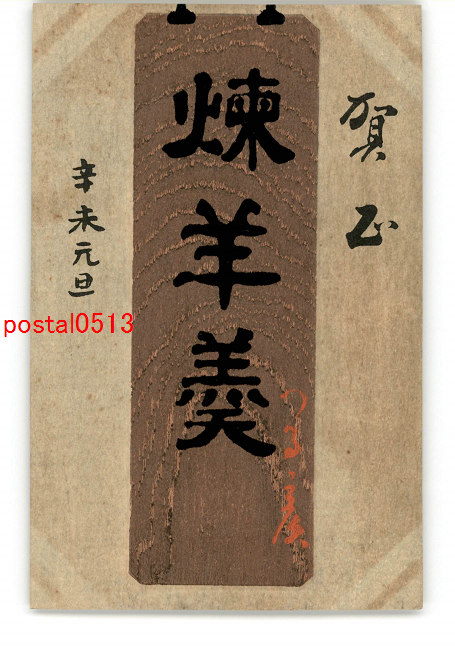 賀正
煉羊羹
辛未元旦
postal0513